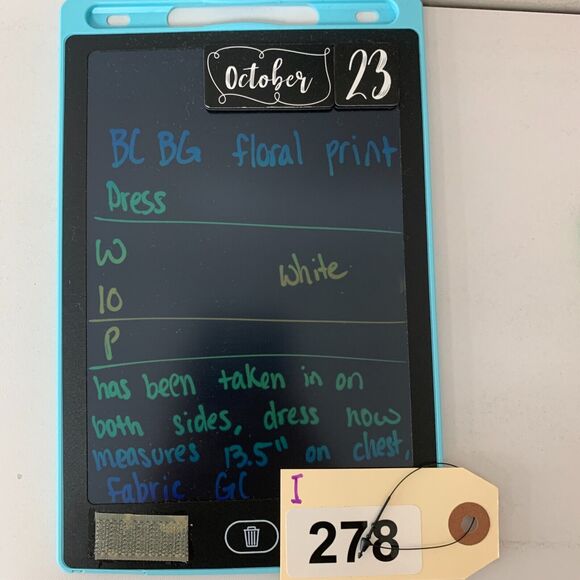 October 23
BCBG floral print
Dress
W
White
10
P
has been taken in on
both sides, dress now
measures 13.5" on chest,
Fabric GC
I
278